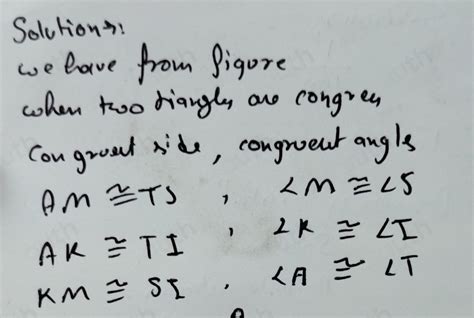 Solutions:
we have from figure
when two triangles are congruen
Congruent side, congruent angles
AM ≅ TS , ∠M ≅ ∠S
AK ≅ TI , ∠K ≅ ∠I
KM ≅ SI , ∠A ≅ ∠T